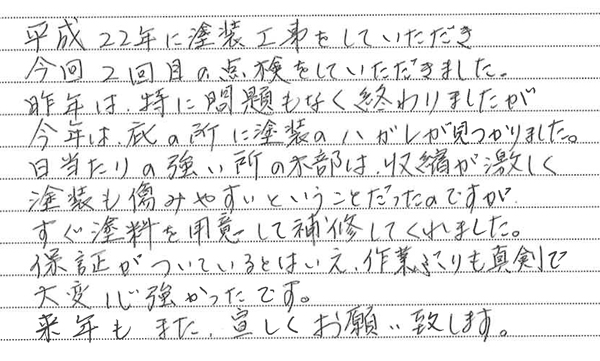 平成22年に塗装工事をしていただき
今回2回目の点検をしていただきました。
昨年は、特に問題もなく終わりましたが
今年は、底の所に塗装のハガレが見つかりました。
日当たりの強い所の木部は、収縮が激しく
塗装も傷みやすいということだったのですが
すぐ塗料を用意して補修してくれました。
保証がついているとはいえ、作業ぶりも真剣で
大変心強かったです。
来年もまた、宜しくお願い致します。